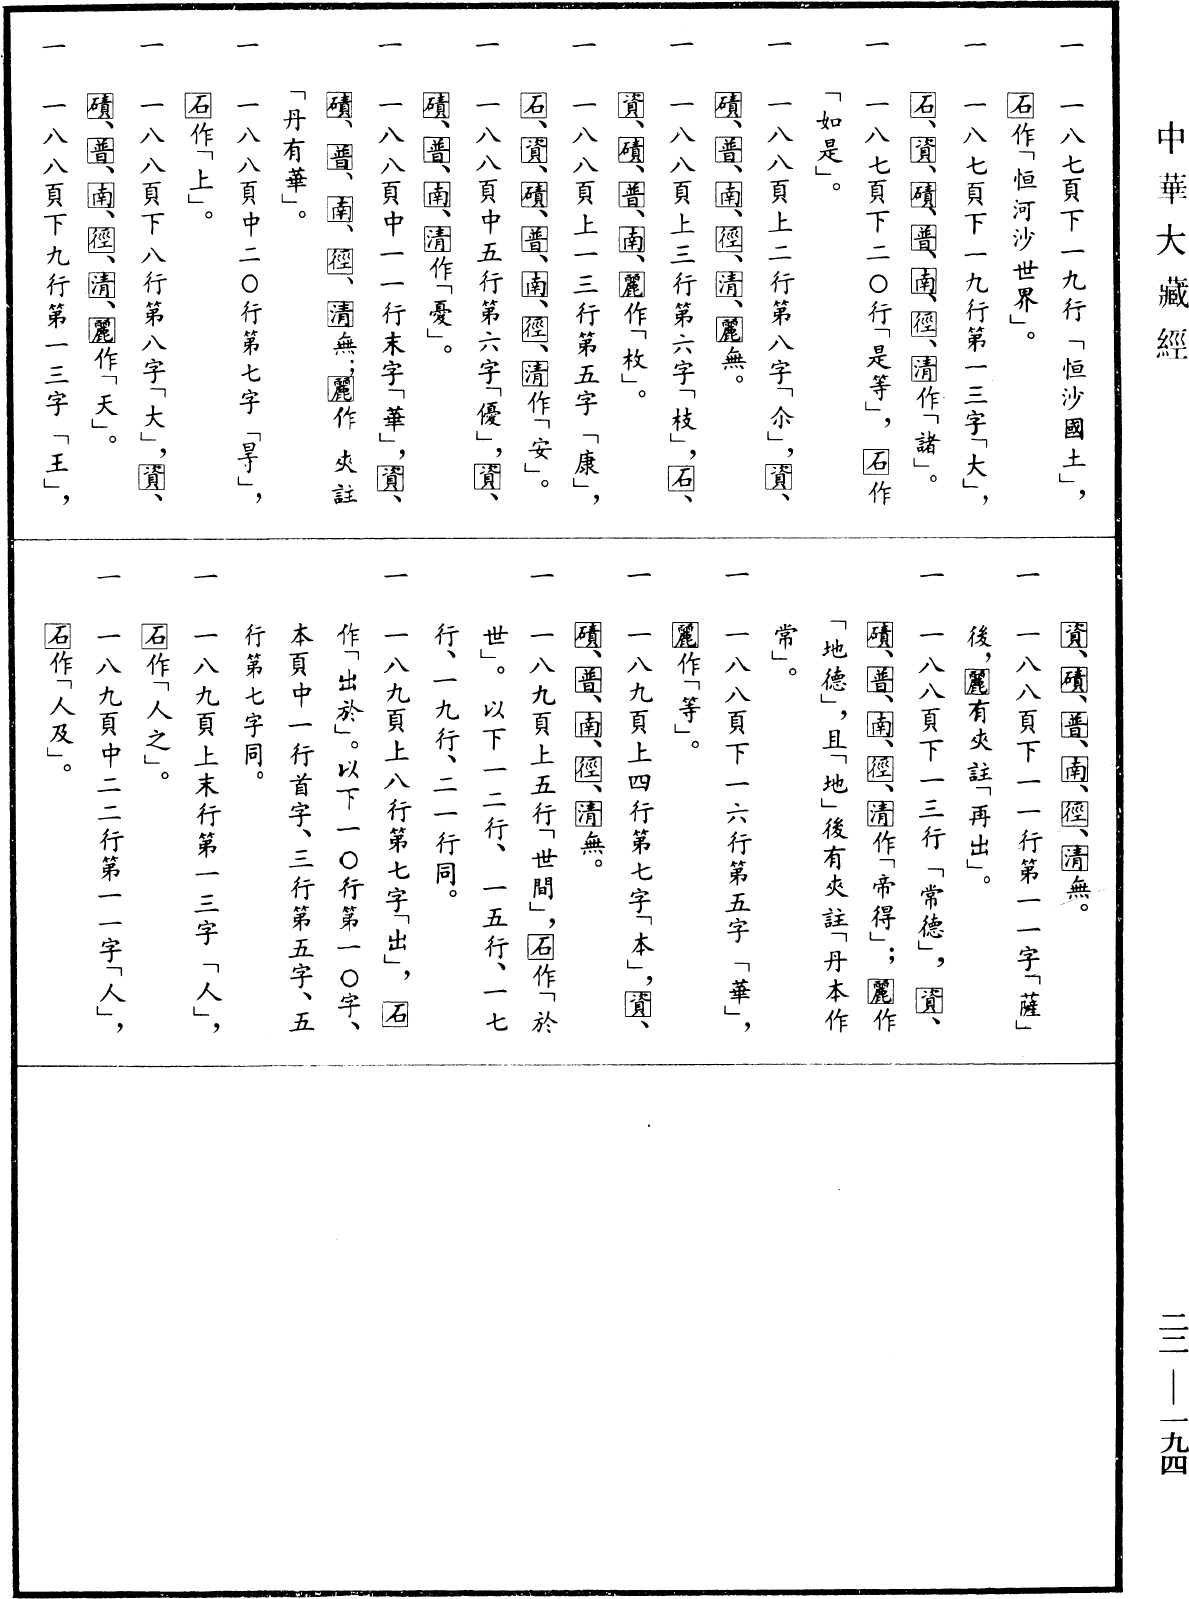 中華大藏經
一 一八七頁下一九行「恒沙國土」，
石作「恒河沙世界」。
一 一八七頁下一九行第一三字「大」，
石、資、磧、普、南、徑、清作「諸」。
一 一八七頁下二〇行「是等」，石作
「如是」。
一 一八八頁上二行第八字「尒」，資、
磧、普、南、徑、清、麗無。
一 一八八頁上三行第六字「枝」，石、
資、磧、普、南、麗作「枚」。
一 一八八頁上一三行第五字「康」，
石、資、磧、普、南、徑、清作「安」。
一 一八八頁中五行第六字「優」，資、
磧、普、南、清作「憂」。
一 一八八頁中一一行末字「華」，資、
磧、普、南、徑、清無；麗作夾註
「丹有華」。
一 一八八頁中二〇行第七字「㝵」，
石作「上」。
一 一八八頁下八行第八字「大」，資、
磧、普、南、徑、清、麗作「天」。
一 一八八頁下九行第一三字「王」，
資、磧、普、南、徑、清無。
一 一八八頁下一一行第一一字「薩」
後，麗有夾註「再出」。
一 一八八頁下一三行「常德」，資、
磧、普、南、徑、清作「帝得」；麗作
「地德」，且「地」後有夾註「丹本作
常」。
一 一八八頁下一六行第五字「華」，
麗作「等」。
一 一八九頁上四行第七字「本」，資、
磧、普、南、徑、清無。
一 一八九頁上五行「世間」，石作「於
世」。以下一二行、一五行、一七
行、一九行、二一行同。
一 一八九頁上八行第七字「出」，石
作「出於」。以下一〇行第一〇字、
本頁中一行首字、三行第五字、五
行第七字同。
一 一八九頁上末行第一三字「人」，
石作「人之」。
一 一八九頁中二二行第一一字「人」，
石作「人及」。
二二—一九四